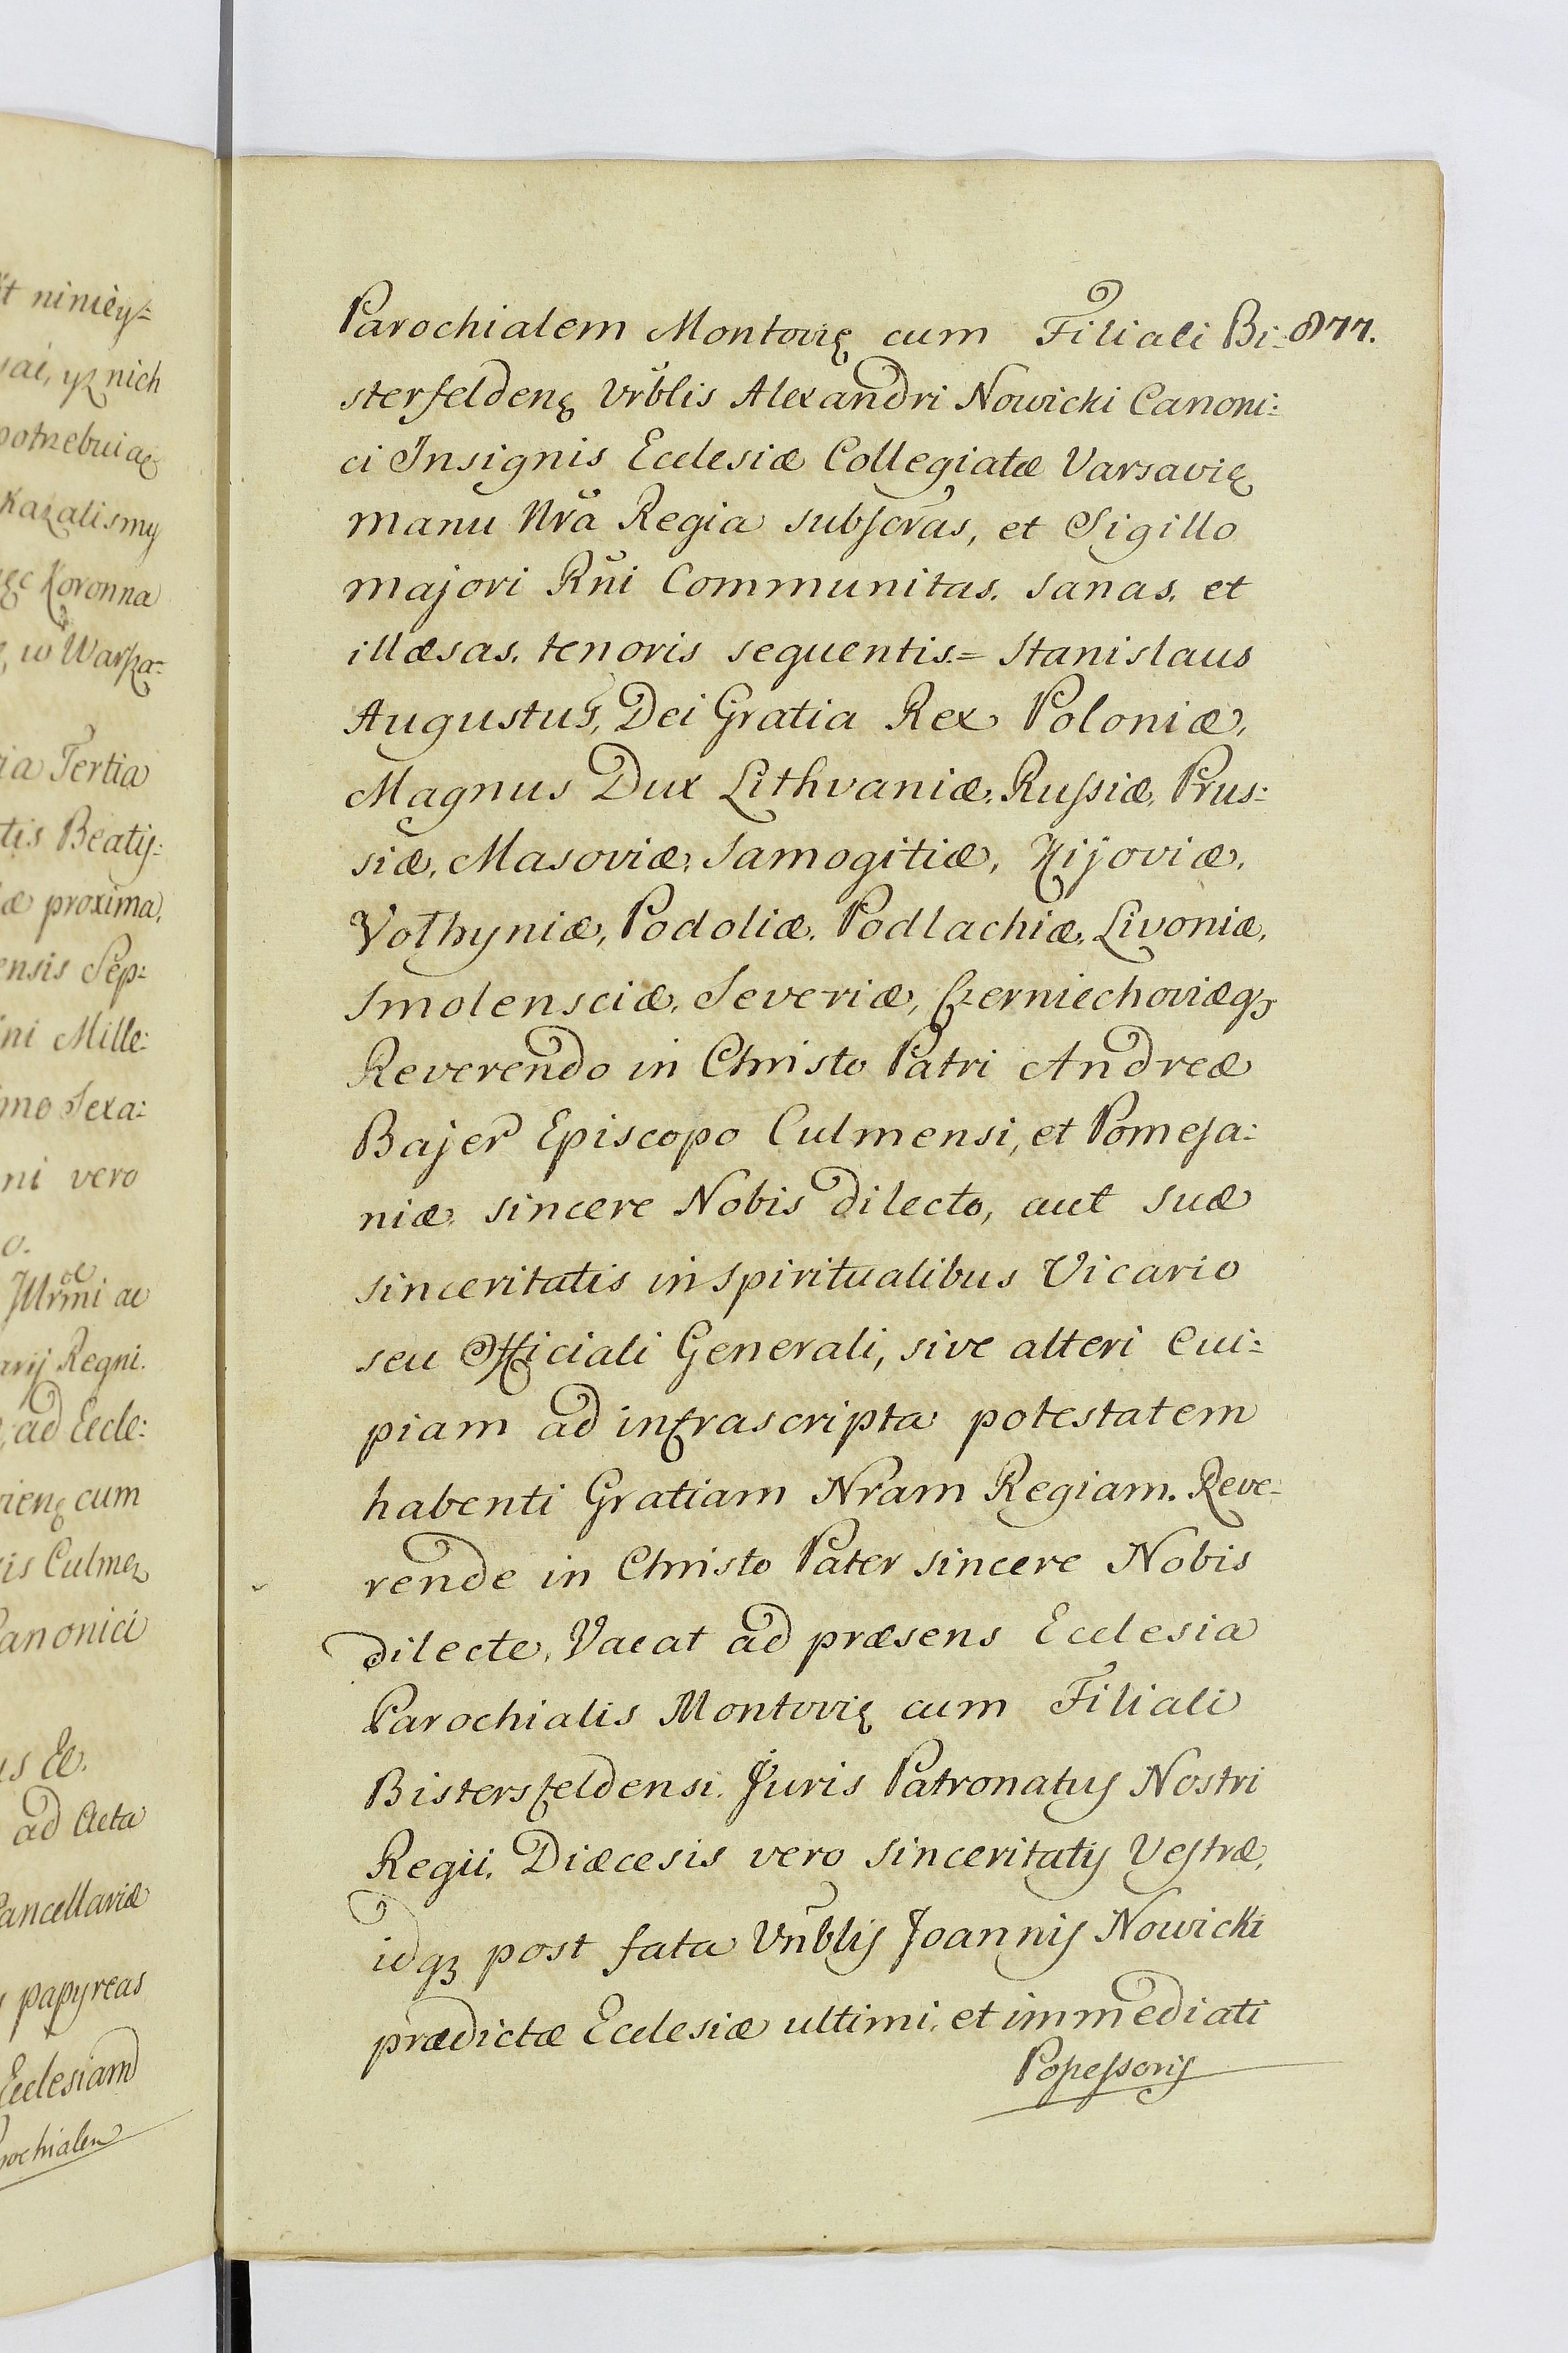 t niniey=
sai, yz nich
potrzebuiąc
kazalismy
ęc Koronna
, w Warsza=
ia Tertia
tis Beatis=
æ proxima,
ensis Sep=
ni Mille=
mo Sexa=
ni vero
o.
Illrmi ac
arij Regni.
ad Eccle=
rieng cum
is Culmen
Canonici
us Ec.
ad Acta
Cancellariæ
papyreas
Ecclesiam
rochialem
877.
Parochialem Montovię cum Filiali Bi=
sterfeldenę Vrblis Alexandri Nowicki Canoni=
ci Insignis Ecclesiæ Collegiatæ Varsavię
manu Nra Regia subscras, et Sigillo
majori Rni Communitas. sanas. et
illæsas. tenoris sequentis.= Stanislaus
Augustus, Dei Gratia Rex Poloniæ,
Magnus Dux Lithvaniæ, Russiæ, Prus=
siæ, Masoviæ, Samogitiæ, Kijoviæ,
Volhyniæ, Podoliæ, Podlachiæ, Livoniæ,
Smolensciæ, Severiæ, Czerniechoviæq3
Reverendo in Christo Patri Andreæ
Bajer Episcopo Culmensi, et Pomesa=
niæ sincere Nobis dilecto, aut suæ
sinceritatis in spiritualibus Vicario
seu Officiali Generali, sive alteri cui=
piam ad infrascripta potestatem
habenti Gratiam Nram Regiam. Reve=
rende in Christo Pater sincere Nobis
dilecte. Vacat ad præsens Ecclesia
Parochialis Montovię cum Filiali
Bistersfeldensi. Juris Patronatus Nostri
Regii. Diæcesis vero sinceritatis Vestræ,
idq3 post fata Vnblis Joannis Nowicki
prædictæ Ecclesiæ ultimi. et immediati
Possessoris